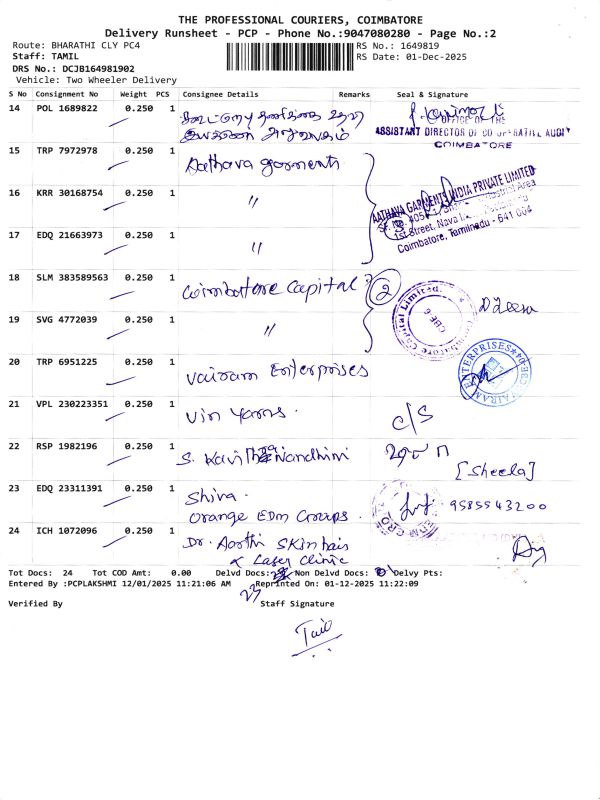 THE PROFESSIONAL COURIERS, COIMBATORE
Delivery Runsheet - PCP - Phone No.:9047080280 - Page No.:2
Route: BHARATHI CLY PC4
RS No.: 1649819
Staff: TAMIL
RS Date: 01-Dec-2025
DRS No.: DCJB164981902
Vehicle: Two Wheeler Delivery
S No Consignment No Weight PCS Consignee Details Remarks Seal & Signature
14 POL 1689822 0.250 1
OFFICE OF THE
ASSISTANT DIRECTOR OF CO OPERATIVE AUDIT
COIMBATORE
15 TRP 7972978 0.250 1 Aathava garments
16 KRR 30168754 0.250 1 "
AATHAVA GARMENTS INDIA PRIVATE LIMITED
1st Street, Nava
Coimbatore, Tamilnadu - 641 004
17 EDQ 21663973 0.250 1 "
18 SLM 383589563 0.250 1 Coimbatore Capital 2
Coimbatore Capital Limited.
CBE-6
19 SVG 4772039 0.250 1 "
20 TRP 6951225 0.250 1 Vairam Enterprises
VAIRAM ENTERPRISES
21 VPL 230223351 0.250 1 Vin Yarns. C/S
22 RSP 1982196 0.250 1 S. Kavitha Nandhini
[Sheela]
23 EDQ 23311391 0.250 1 Shiva.
Orange EDM Groups. 9585543200
24 ICH 1072096 0.250 1 Dr. Aarthi Skin hair
& Laser clinic
Tot Docs: 24 Tot COD Amt: 0.00 Delvd Docs: Non Delvd Docs: Delvy Pts:
Entered By :PCPLAKSHMI 12/01/2025 11:21:06 AM Reprinted On: 01-12-2025 11:22:09
23
Verified By Staff Signature